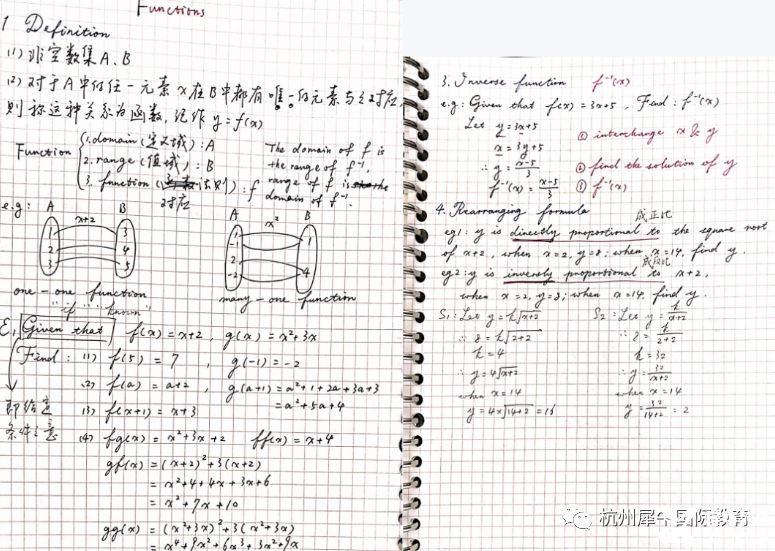 Functions
1 Definition
(1) 非空数集A、B
(2) 对于A中的任一元素x在B中都有唯一的元素与之对应,
则称这种关系为函数,记作 y=f(x)
Function { 1. domain (定义域) : A
2. range (值域) : B
3. function (对应法则) : f
The domain of f is
the range of f⁻¹,
range of f is the
domain of f⁻¹.
e.g:
A x+2 B
1 3
2 4
3 5
one-one function
A x² B
1
-1 1
2
-2 4
many-one function
"if" "known"
E.1 Given that f(x)=x+2, g(x)=x²+3x
Find: (1) f(5)=7, g(-1)=-2
(2) f(a)=a+2, g(a+1)=a²+1+2a+3a+3
=a²+5a+4
(3) f(x+1)=x+3
即给定
条件之意
(4) fg(x)=x²+3x+2 ff(x)=x+4
gf(x)=(x+2)²+3(x+2)
=x²+4+4x+3x+6
=x²+7x+10
gg(x)=(x²+3x)²+3(x²+3x)
=x⁴+9x²+6x³+3x²+9x
3. Inverse function f⁻¹(x)
e.g: Given that f(x)=3x+5, Find: f⁻¹(x)
Let y=3x+5 ① interchange x & y
x=3y+5
∴ y=(x-5)/3 ② find the solution of y
f⁻¹(x)=(x-5)/3 ③ f⁻¹(x)
4. Rearranging formula
成正比
eg1: y is directly proportional to the square root
of x+2, when x=2, y=8; when x=14, find y.
成反比
eg2: y is inversly proportional to x+2,
when x=2, y=8; when x=14, find y.
S1: Let y=k√(x+2) S2: Let y=k/(x+2)
∴ 8=k√(2+2) ∴ 8=k/(2+2)
k=4 k=32
∴ y=4√(x+2) ∴ y=32/(x+2)
when x=14 when x=14
y=4×√(14+2)=16 y=32/(14+2)=2
杭州犀牛国际教育